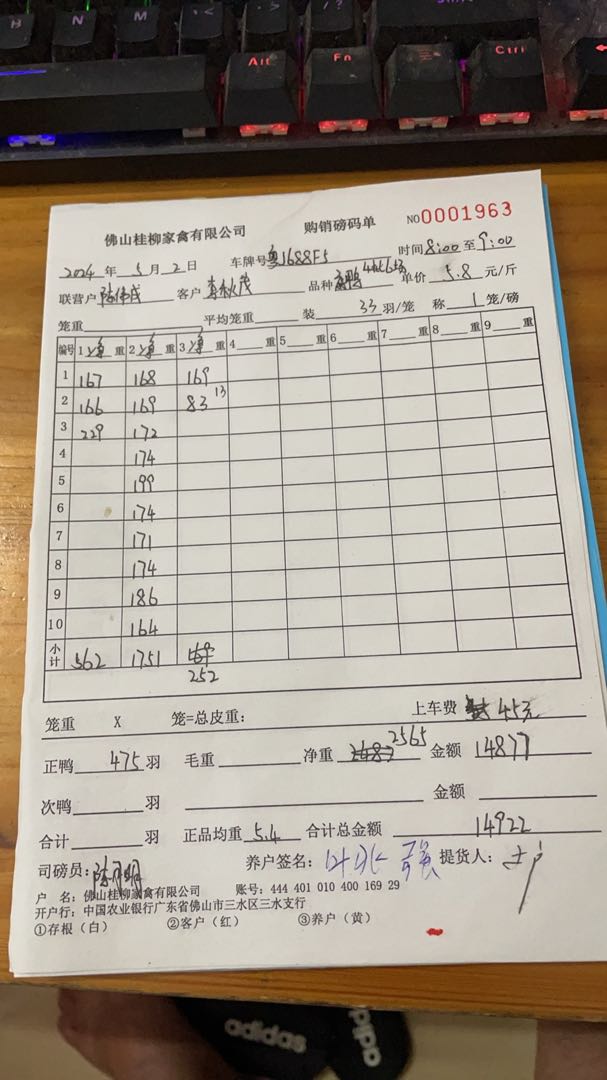 B N M < > ? Shift
Alt Fn Ctrl
佛山桂柳家禽有限公司 购销磅码单 NO0001963
2024年5月2日 车牌号粤J688F5 时间8:00至9:00
联营户 客户 品种 单价5.8元/斤
笼重 平均笼重 装33羽/笼 称1笼/磅
编号 1净重 2净重 3净重 4重 5重 6重 7重 8重 9重
1 167 168 169
2 166 169 83 13
3 229 172
4 174
5 199
6 174
7 171
8 174
9 186
10 164
小计 562 1751 252
笼重 X 笼=总皮重: 上车费 45元
正鸭475羽 毛重 净重 2565 金额 14877
次鸭 羽 金额
合计 羽 正品均重5.4 合计总金额 14922
司磅员: 养户签名: 提货人:
户 名:佛山桂柳家禽有限公司 账号:444 401 010 400 169 29
开户行:中国农业银行广东省佛山市三水区三水支行
①存根(白) ②客户(红) ③养户(黄)
adidas
adidas